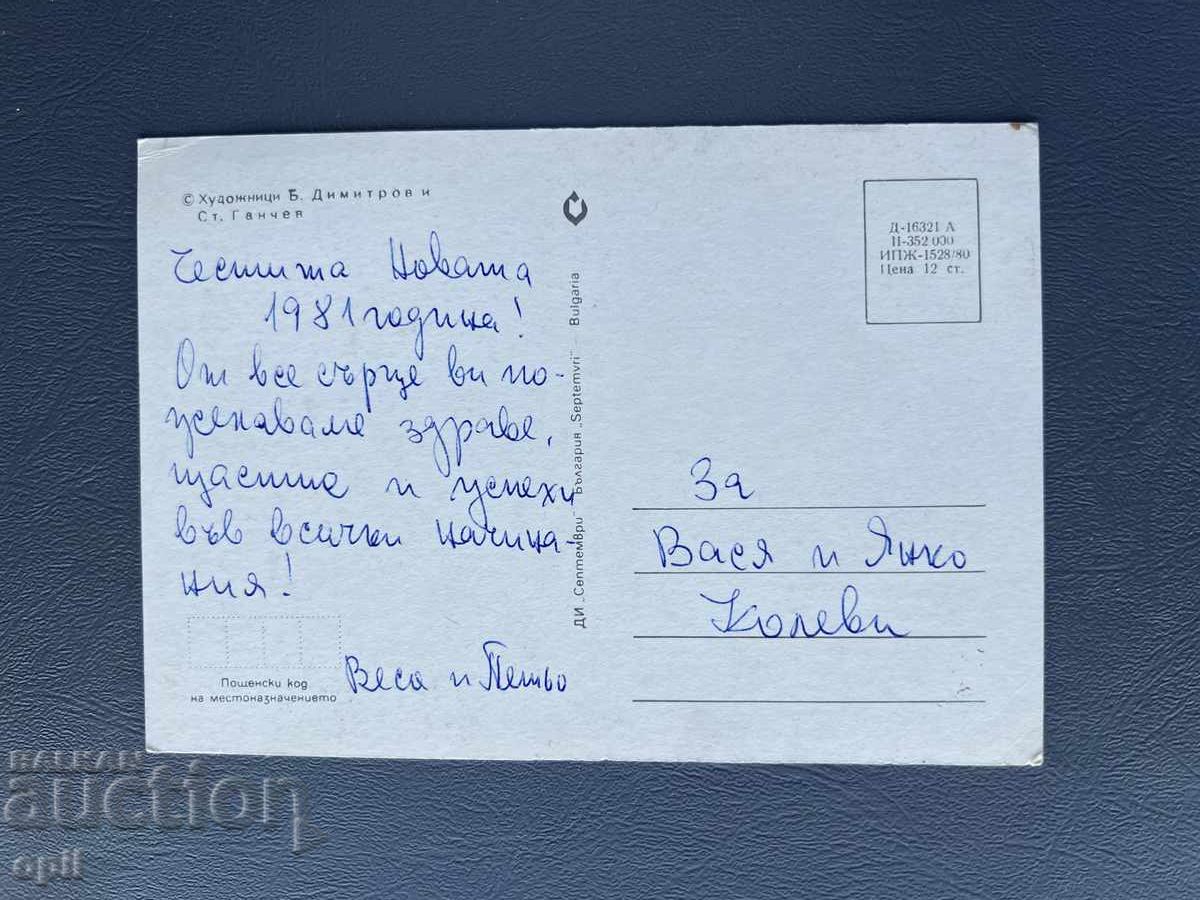 © Художници Б. Димитров и
Ст. Ганчев
Честита Новата
1981 година!
От все сърце ви по-
желаваме здраве,
щастие и успехи
във всички начина-
ния!
Веса и Петьо
Пощенски код
на местоназначението
ДИ „Септември" България „Septemvri" – Bulgaria
Д-16321 А
II-352 000
ИПЖ-1528/80
Цена 12 ст.
За
Вася и Янко
Колеви
BALKAN
auction
opil